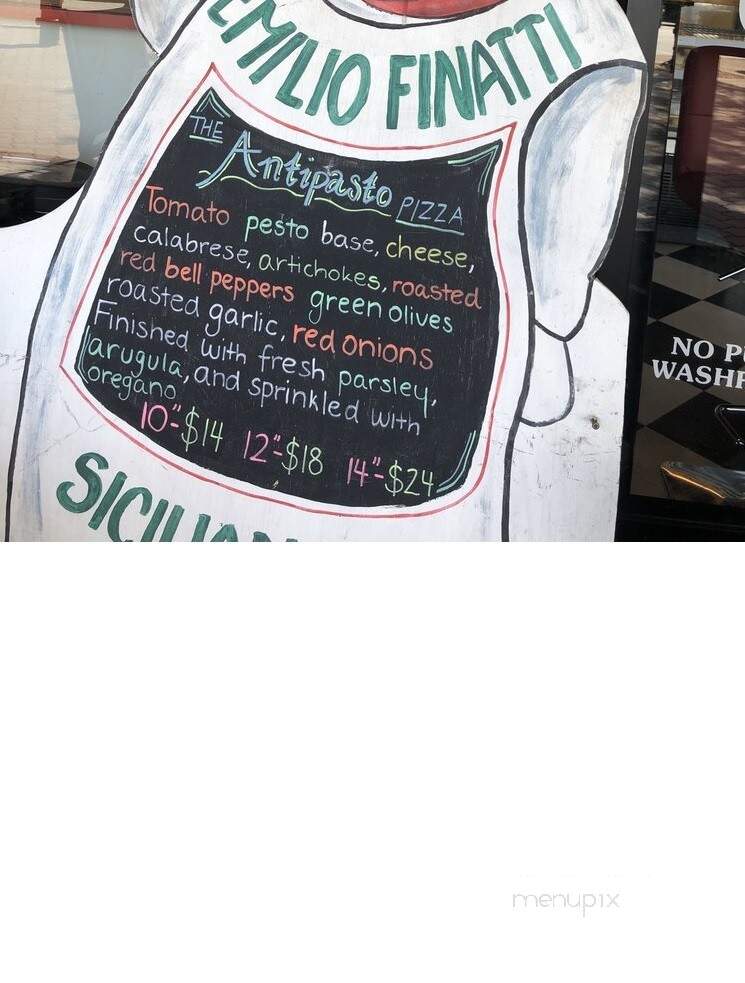 EMILIO FINATTI
THE Antipasto PIZZA
Tomato pesto base, cheese,
calabrese, artichokes, roasted
red bell peppers green olives
roasted garlic, red onions
Finished with fresh parsley,
arugula, and sprinkled with
oregano
10"-$14 12"-$18 14"-$24
NO P
WASH
menupix